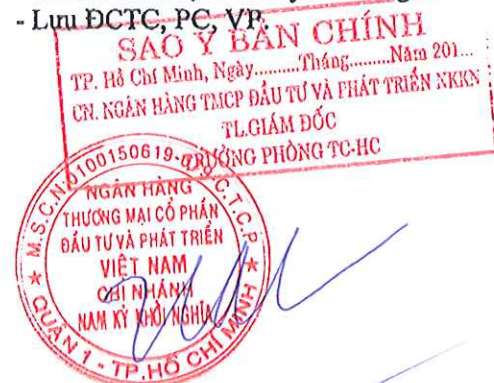 - Lưu ĐCTC, PC, VP.
SAO Y BẢN CHÍNH
TP. Hồ Chí Minh, Ngày..........Tháng.........Năm 201...
CN. NGÂN HÀNG TMCP ĐẦU TƯ VÀ PHÁT TRIỂN NKKN
TL.GIÁM ĐỐC
TRƯỞNG PHÒNG TC-HC
M.S.C.N:0100150619- C.T.C.P
NGÂN HÀNG
THƯƠNG MẠI CỔ PHẦN
ĐẦU TƯ VÀ PHÁT TRIỂN
VIỆT NAM
CHI NHÁNH
NAM KỲ KHỞI NGHĨA
QUẬN 1 - TP.HỒ CHÍ MINH